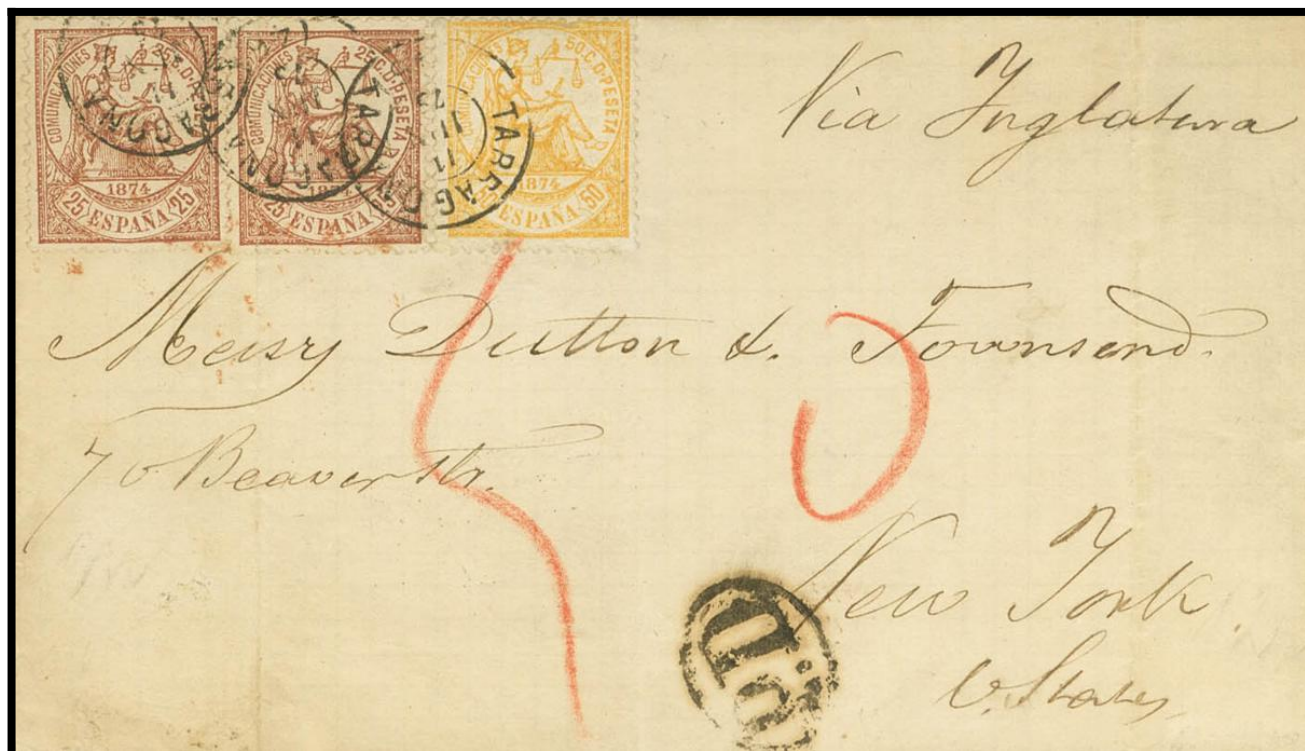 COMUNICACIONES 25 C. DE PESETA
1874
25 ESPAÑA 25
COMUNICACIONES 25 C. DE PESETA
1874
25 ESPAÑA 25
COMUNICACIONES 50 C. DE PESETA
1874
ESPAÑA 50
TARRAGONA
TARRAGON
Via Inglaterra
Messrs Dutton &. Townsend.
70 Beaver str.
New York.
U. States
P.D.